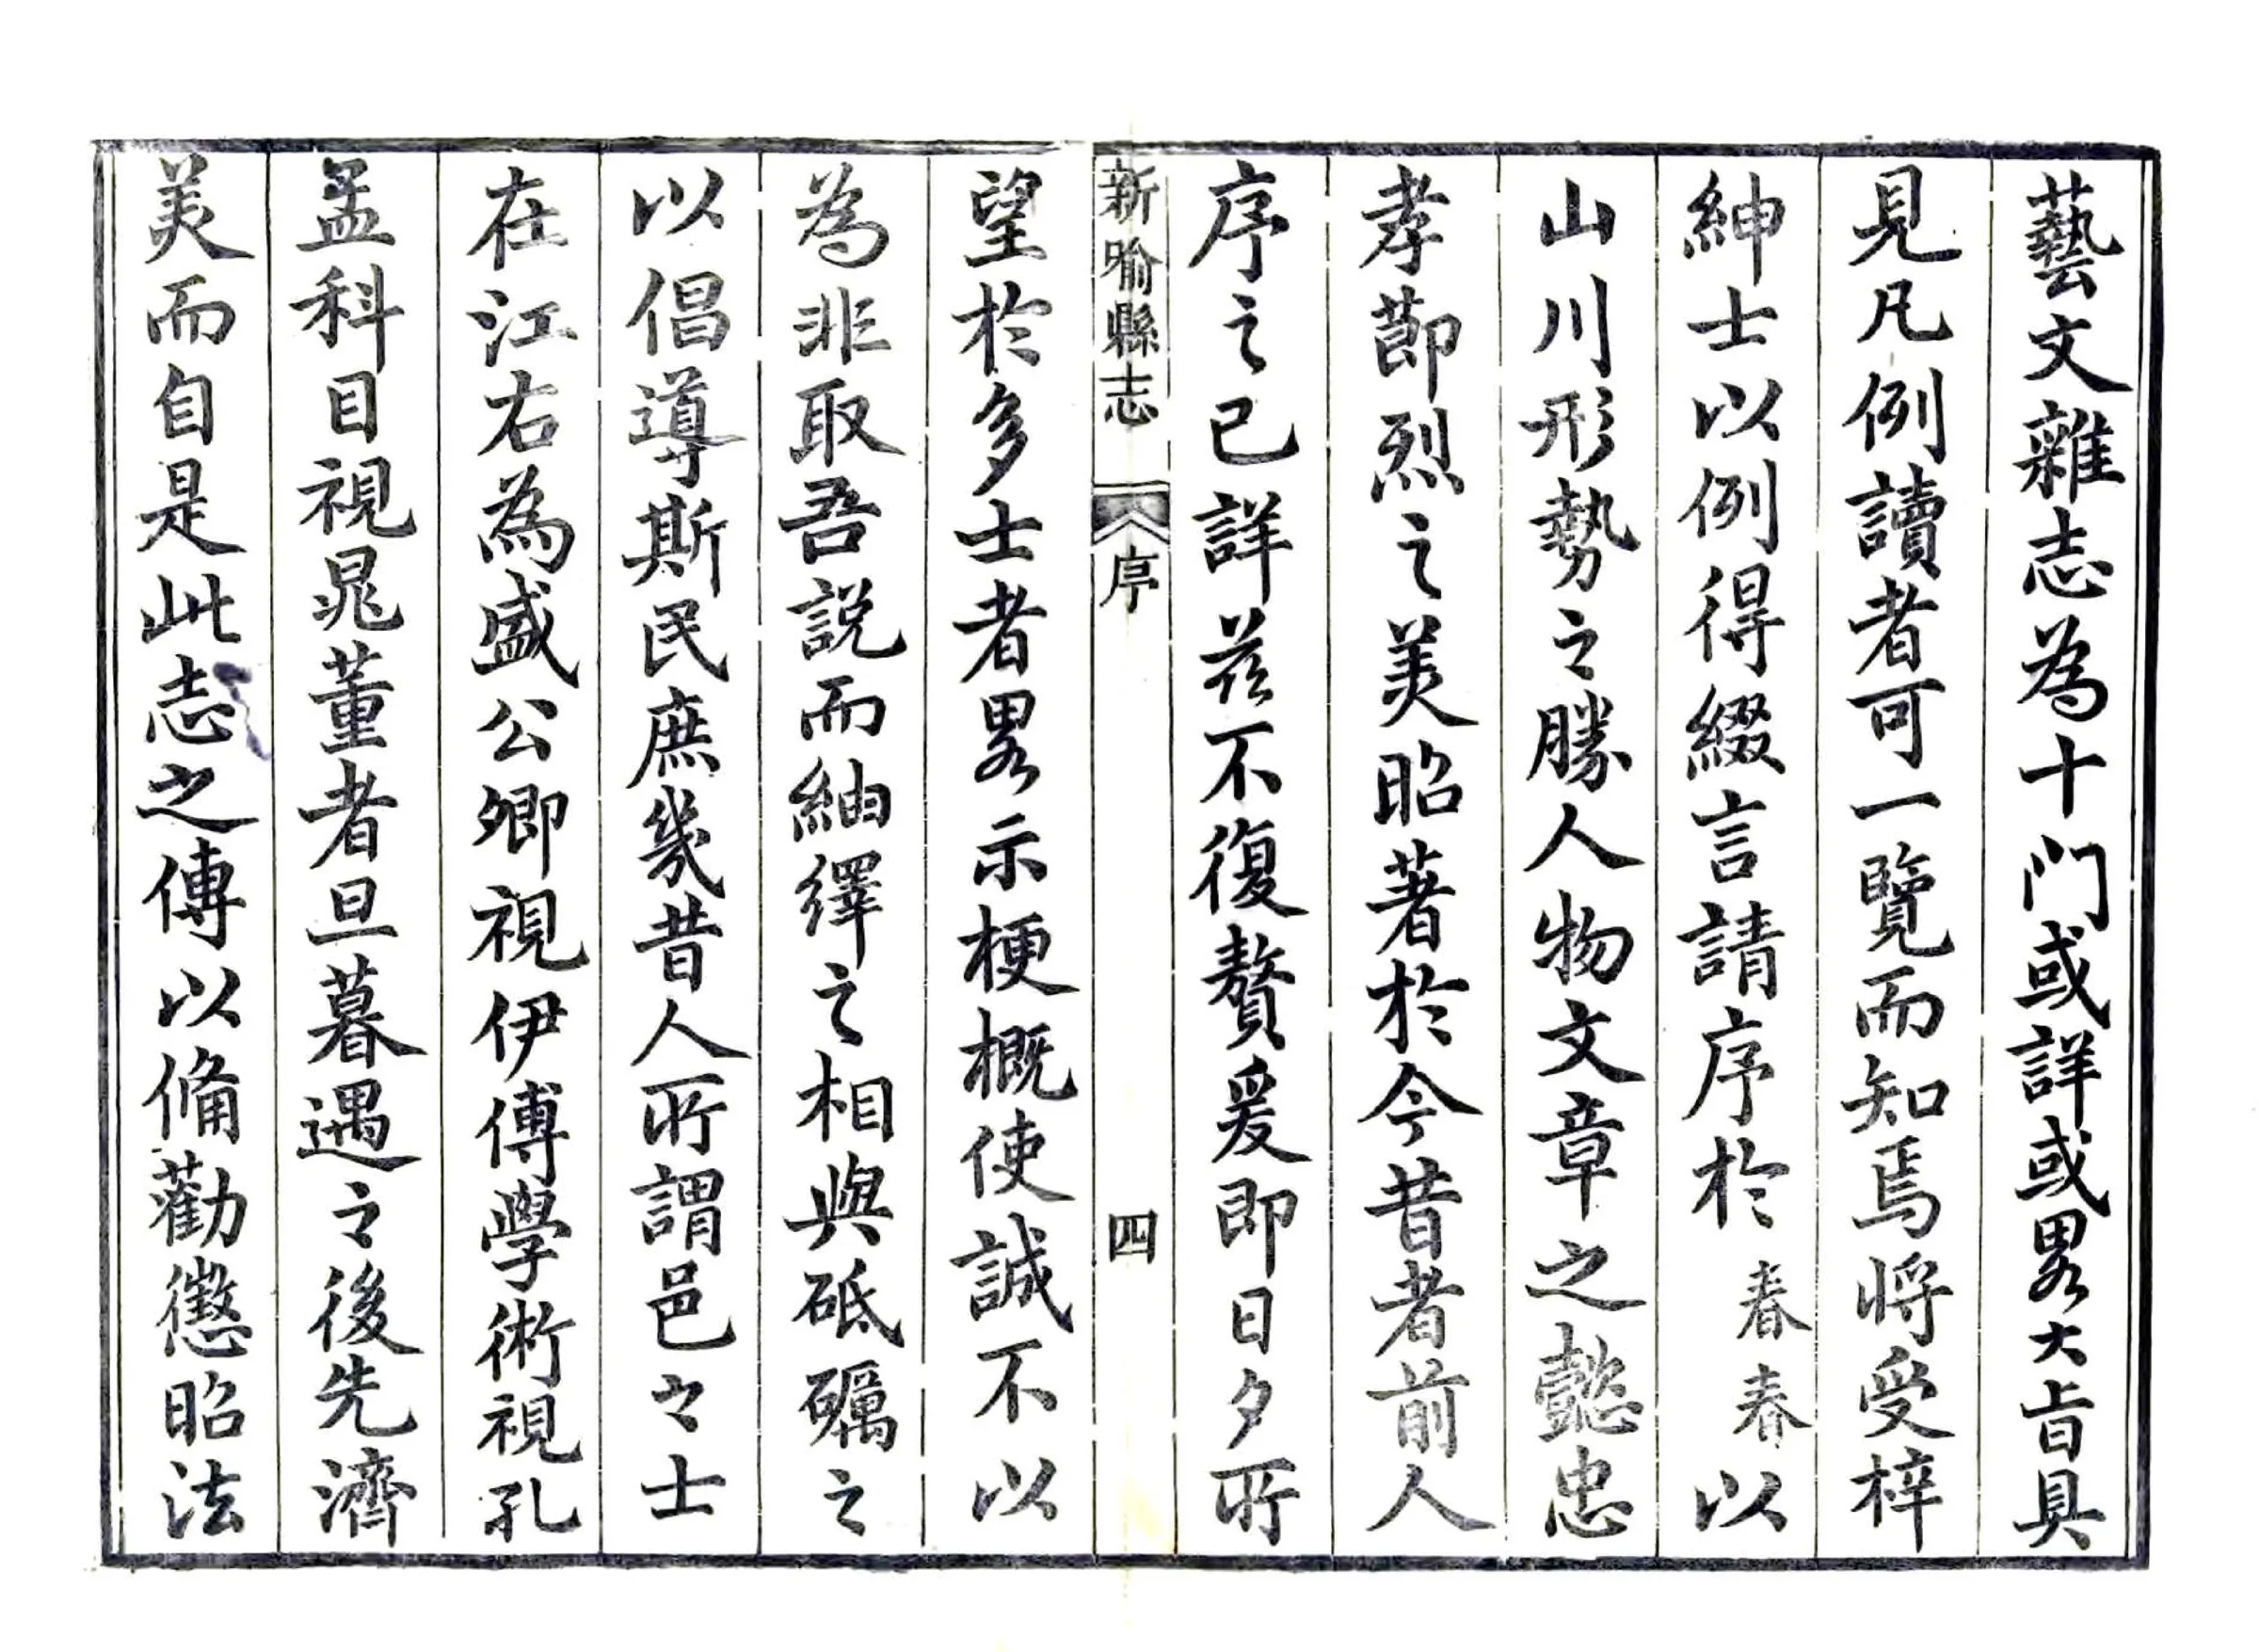 藝文雜志為十門或詳或畧大旨具
見凡例讀者可一覽而知焉將受梓
紳士以例得綴言請序於春春以
山川形勢之勝人物文章之懿忠
孝節烈之美昭著於今昔者前人
序之已詳茲不復贅爰即日夕所
新喻縣志 序 四
望於多士者畧示梗概使誠不以
為非取吾說而紬繹之相與砥礪之
以倡導斯民庶幾昔人所謂邑之士
在江右為盛公卿視伊傅學術視孔
孟科目視晁董者旦暮遇之後先濟
美而自是此志之傳以備勸懲昭法